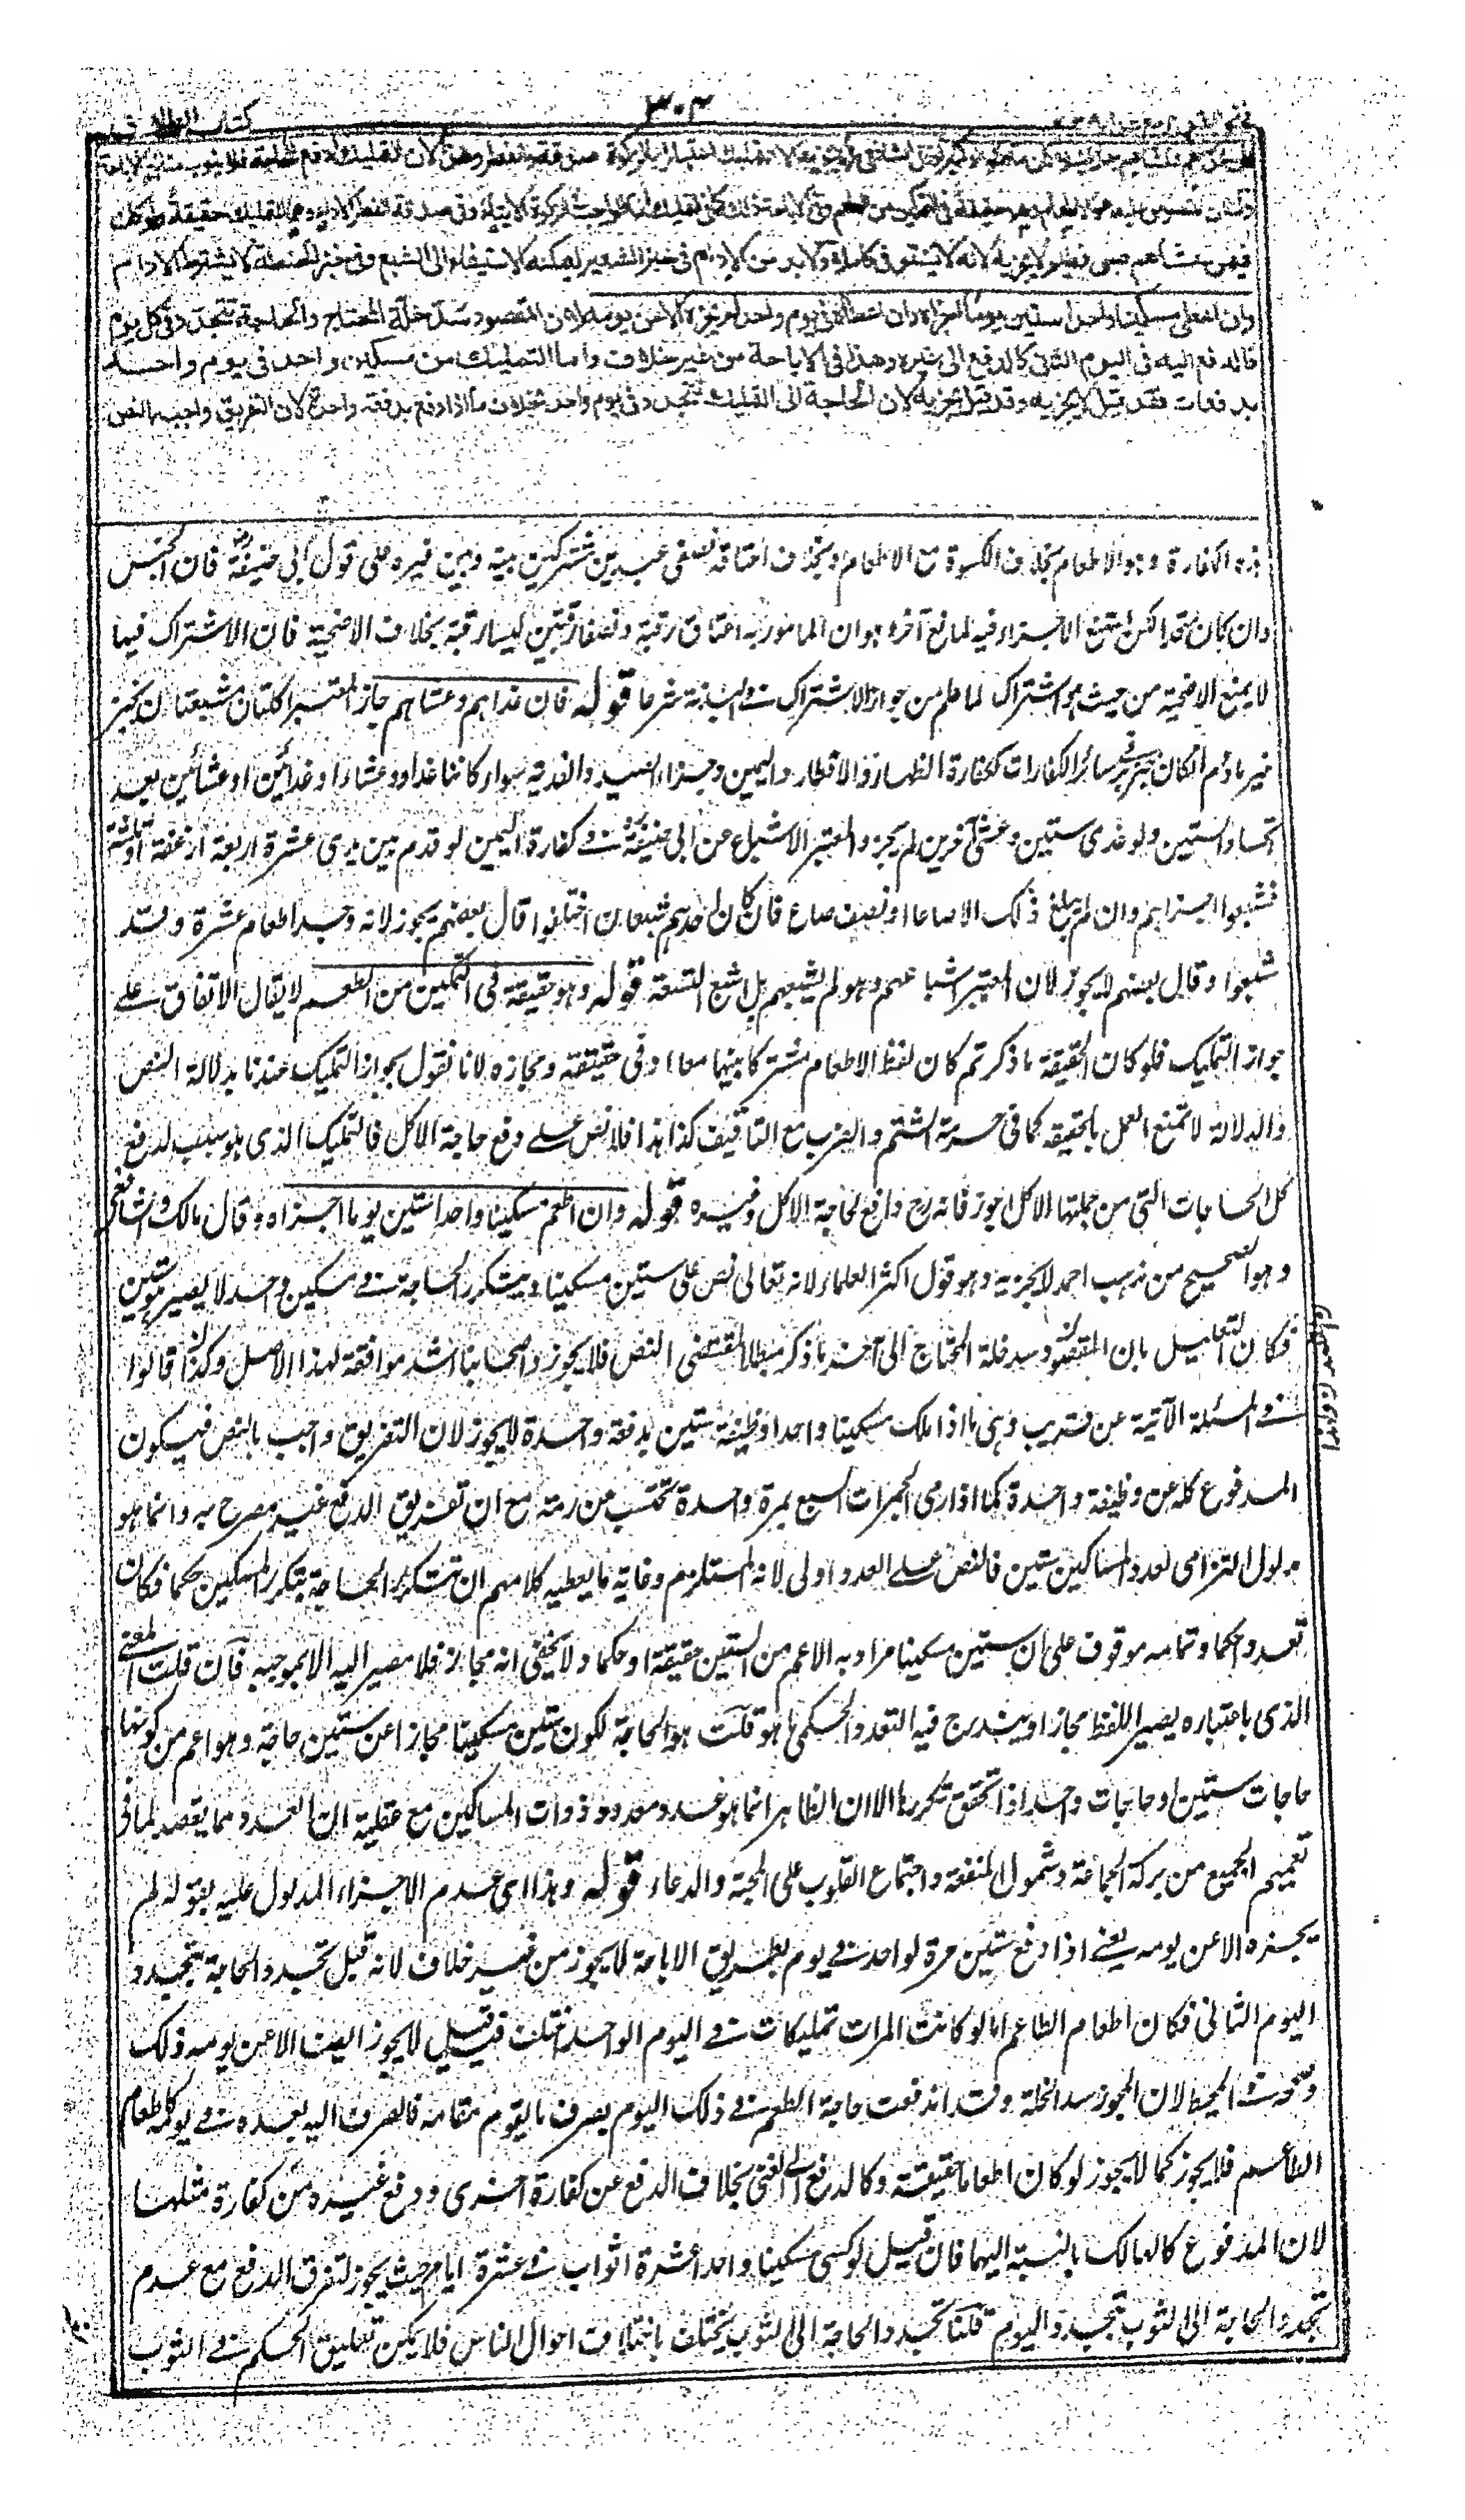 كتاب الطلاق
٣٠٤
وان اطعم مسكينا واحدا ستين يوما اجزاه وان اعطاه في يوم واحد لم يجزه الا عن يومه لان المقصود سد خلة المحتاج والحاجة تتجدد في كل يوم
فالدفع اليه في اليوم الثاني كالدفع الى غيره وهذا في الاباحة من غير خلاف واما التمليك من مسكين واحد في يوم واحد
بدفعات فقد قيل لا يجزيه وقد قيل يجزيه لان الحاجة الى التمليك تتجدد في يوم واحد بخلاف ما اذا دفع بدفعة واحدة لان التفريق واجب بالنص
هذه الكفارة وهو الاطعام بخلاف الكسوة مع الاطعام وبخلاف اعتاقه نصفى عبدين مشتركين بينه وبين غيره على قول ابي حنيفة فان الجنس
وان كان متحدا لكن امتنع الاجزاء فيه لمانع آخر وهو ان المامور به اعتاق رقبة ونصفا رقبتين ليسا رقبة بخلاف الاضحية فان الاشتراك فيها
لا يمنع الاضحية من حيث هو اشتراك لما علم من جواز الاشتراك في البدنة شرعا قوله فان غداهم وعشاهم جاز المعتبر اكلتان مشبعتان بخبز
غير مادوم ان كان خبز بر في سائر الكفارات ككفارة الظهار والافطار واليمين وجزاء الصيد والفدية سواء كانتا غداء وعشاء او غدائين او عشائين بعد
اتحاد الستين ولو غدى ستين وعشى آخرين لم يجز والمعتبر الاشباع عن ابي حنيفة في كفارة اليمين لو قدم بين يدى عشرة اربعة ارغفة او ثلثة
فشبعوا اجزاهم وان لم يبلغ ذلك الا صاعا او نصف صاع فان كان احدهم شبعان اختلفوا قال بعضهم يجوز لانه وجد اطعام عشرة وقد
شبعوا وقال بعضهم لا يجوز لان المعتبر اشباعهم وهو لم يشبعهم بل اشبع التسعة قوله وهو حقيقة في التمكين من الطعم لا يقال الاتفاق على
جواز التمليك فلو كان الحقيقة ما ذكرتم كان لفظ الاطعام مشتركا بينهما معا او في حقيقته ومجازه لانا نقول بجواز التمليك عندنا بدلالة النص
والدلالة لا تمنع العمل بالحقيقة كما في حرمة الشتم والضرب مع التافيف كذا هذا فلا نص على دفع حاجة الاكل فالتمليك الذى هو سبب لدفع
كل الحاجات التى من جملتها الاكل اجوز فانه ح دافع لحاجة الاكل وغيره قوله وان اطعم مسكينا واحدا ستين يوما اجزاه وقال مالك والشافعى
وهو الصحيح من مذهب احمد لا يجزيه وهو قول اكثر العلماء لانه تعالى نص على ستين مسكينا وبتكرر الحاجة في مسكين واحد لا يصير هو ستين
فكان التعليل بان المقصود سد خلة المحتاج الى آخر ما ذكر مبطلا لمقتضى النص فلا يجوز واصحابنا اشد موافقة لهذا الاصل وكذا قالوا
في المسئلة الآتية عن قريب وهى ما اذا ملك مسكينا واحدا وظيفة ستين بدفعة واحدة لا يجوز لان التفريق واجب بالنص فيكون
المدفوع كله عن وظيفة واحدة كما اذا رمى الجمرات السبع بمرة واحدة تحتسب عن رمية مع ان تفريق الدفع غير مصرح به وانما هو
مدلول التزامى لعدد المساكين ستين فالنص على العدد اولى لانه المستلزم وغاية ما يعطيه كلامهم ان تتكرر الحاجة بتكرر المسكين حكما فكان
تعددا حكما وتمامه موقوف على ان ستين مسكينا مراد به الاعم من الستين حقيقة او حكما ولا يخفى انه مجاز فلا مصير اليه الا بموجبه فان قلت المعنى
الذى باعتباره يصير اللفظ مجازا ويندرج فيه التعدد الحكمى ما هو قلت هو الحاجة لكون ستين مسكينا مجازا عن ستين حاجة وهو اعم من كونها
حاجات ستين او حاجات واحد اذا تحقق تكررها الا ان الظاهر انما هو عدد معدود ذوات المساكين مع عقلية ان العدد مما يقصد لما في
تعميم الجميع من بركة الجماعة وشمول المنفعة واجتماع القلوب على المحبة والدعاء قوله وهذا اى عدم الاجزاء المدلول عليه بقوله لم
يجزه الا عن يومه يعنى اذا دفع ستين مرة لواحد في يوم بطريق الاباحة لا يجوز من غير خلاف لانه قبل تجدد الحاجة بتجدد
اليوم الثاني فكان اطعام الطاعم اما لو كانت المرات تمليكات في اليوم الواحد اختلف فقيل لا يجوز ايضا الا عن يومه ذلك
وصححه في المحيط لان المجوز سد الخلة وقد اندفعت حاجة الطعم في ذلك اليوم بصرف ما يقوم مقامه فالصرف اليه بعده في يومه كاطعام
الطاعم فلا يجوز كما لا يجوز لو كان اطعاما حقيقة وكالدفع الى الغنى بخلاف الدفع عن كفارة اخرى ودفع غيره من كفارة مثلها
لان المدفوع كالهالك بالنسبة اليهما فان قيل لو كسى مسكينا واحدا عشرة اثواب في عشرة ايام حيث يجوز لتفرق الدفع مع عدم
تجدد الحاجة الى الثوب بتجدد اليوم قلنا تجدد الحاجة الى الثوب يختلف باختلاف احوال الناس فلا يمكن تعليق الحكم في الثوب